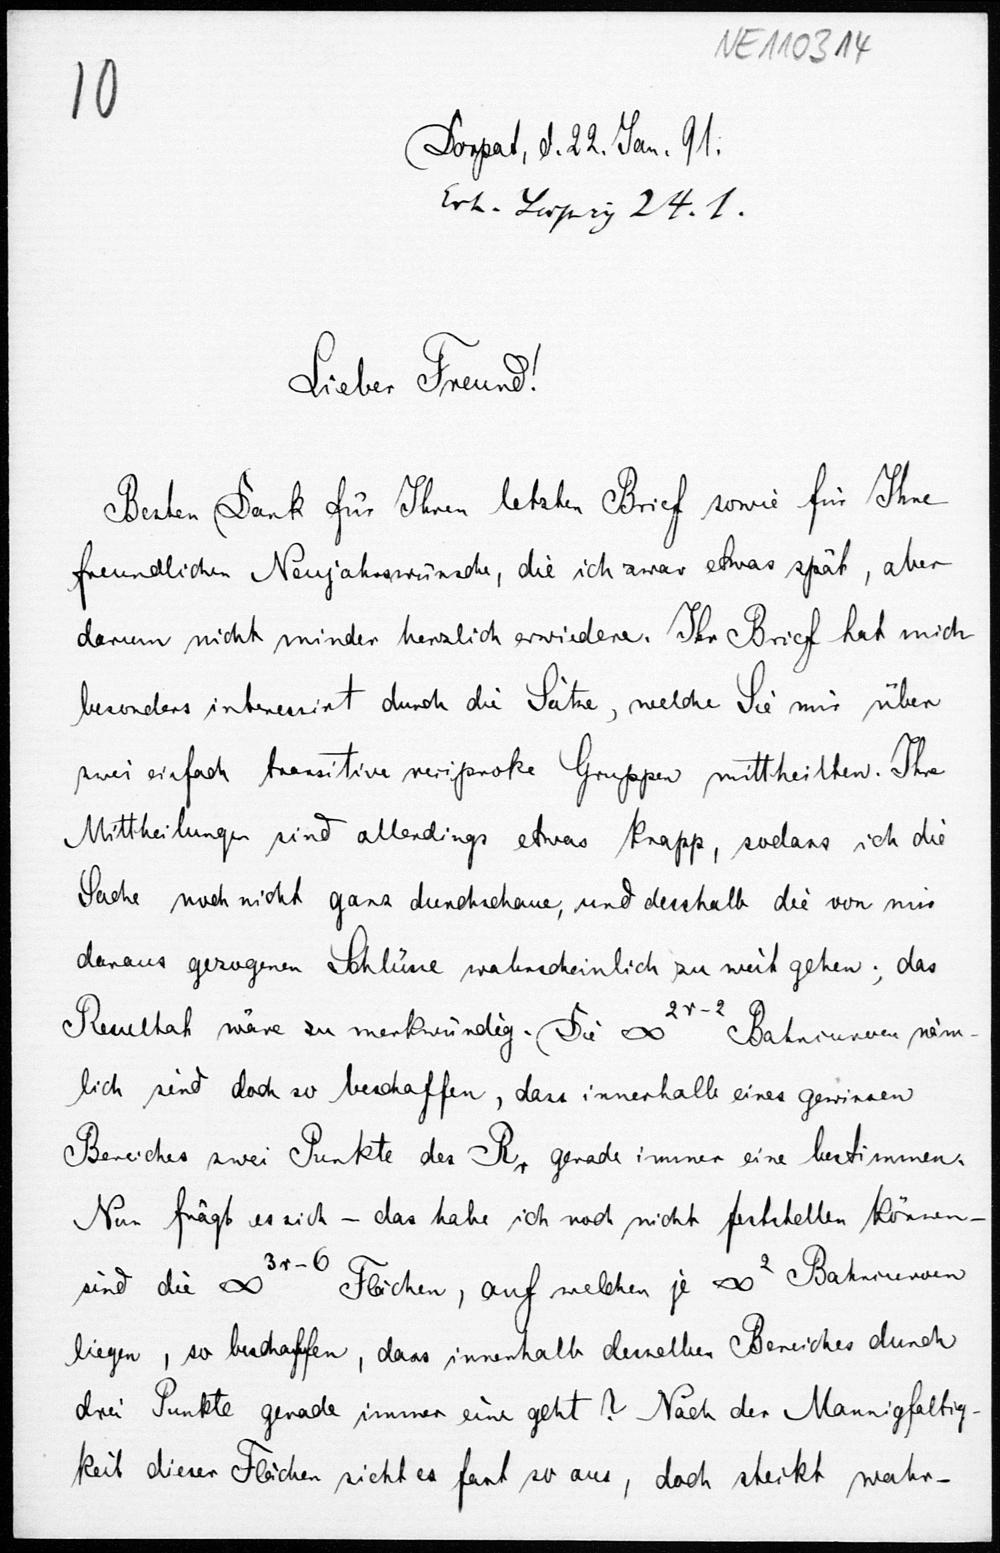 NE110314
10
Dorpat, d. 22. Jan. 91.
Erh. Leipzig 24.1.
Lieber Freund!
Besten Dank für Ihren letzten Brief sowie für Ihre
freundlichen Neujahrswünsche, die ich zwar etwas spät, aber
darum nicht minder herzlich erwiedere. Ihr Brief hat mich
besonders interessirt durch die Sätze, welche Sie mir über
zwei einfach transitive reciproke Gruppen mittheilten. Ihre
Mittheilungen sind allerdings etwas knapp, sodass ich die
Sache noch nicht ganz durchschaue, und desshalb die von mir
daraus gezogenen Schlüsse wahrscheinlich zu weit gehen; das
Resultat wäre zu merkwürdig. Die ∞^{2r-2} Bahncurven näm-
lich sind doch so beschaffen, dass innerhalb eines gewissen
Bereiches zwei Punkte des R_r gerade immer eine bestimmen.
Nun frägt es sich – das habe ich noch nicht feststellen können –
sind die ∞^{3r-6} Flächen, auf welchen je ∞^2 Bahncurven
liegen, so beschaffen, dass innerhalb desselben Bereiches durch
drei Punkte gerade immer eine geht? Nach der Mannigfaltig-
keit dieser Flächen sieht es fast so aus, doch steckt wahr-